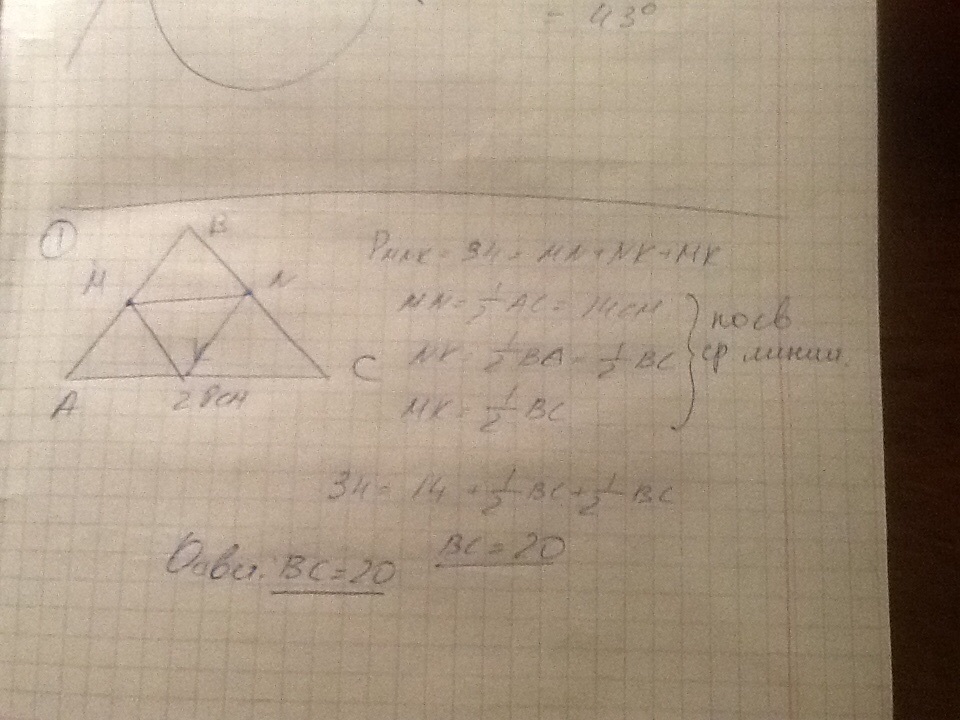 - 43°
①
B
M
N
K
A
28см
C
P MNK = 34 = MN + NK + MK
MN = 1/2 AC = 14 см
NK = 1/2 BA = 1/2 BC
MK = 1/2 BC
по св
ср линии.
34 = 14 + 1/2 BC + 1/2 BC
BC = 20
BC = 20